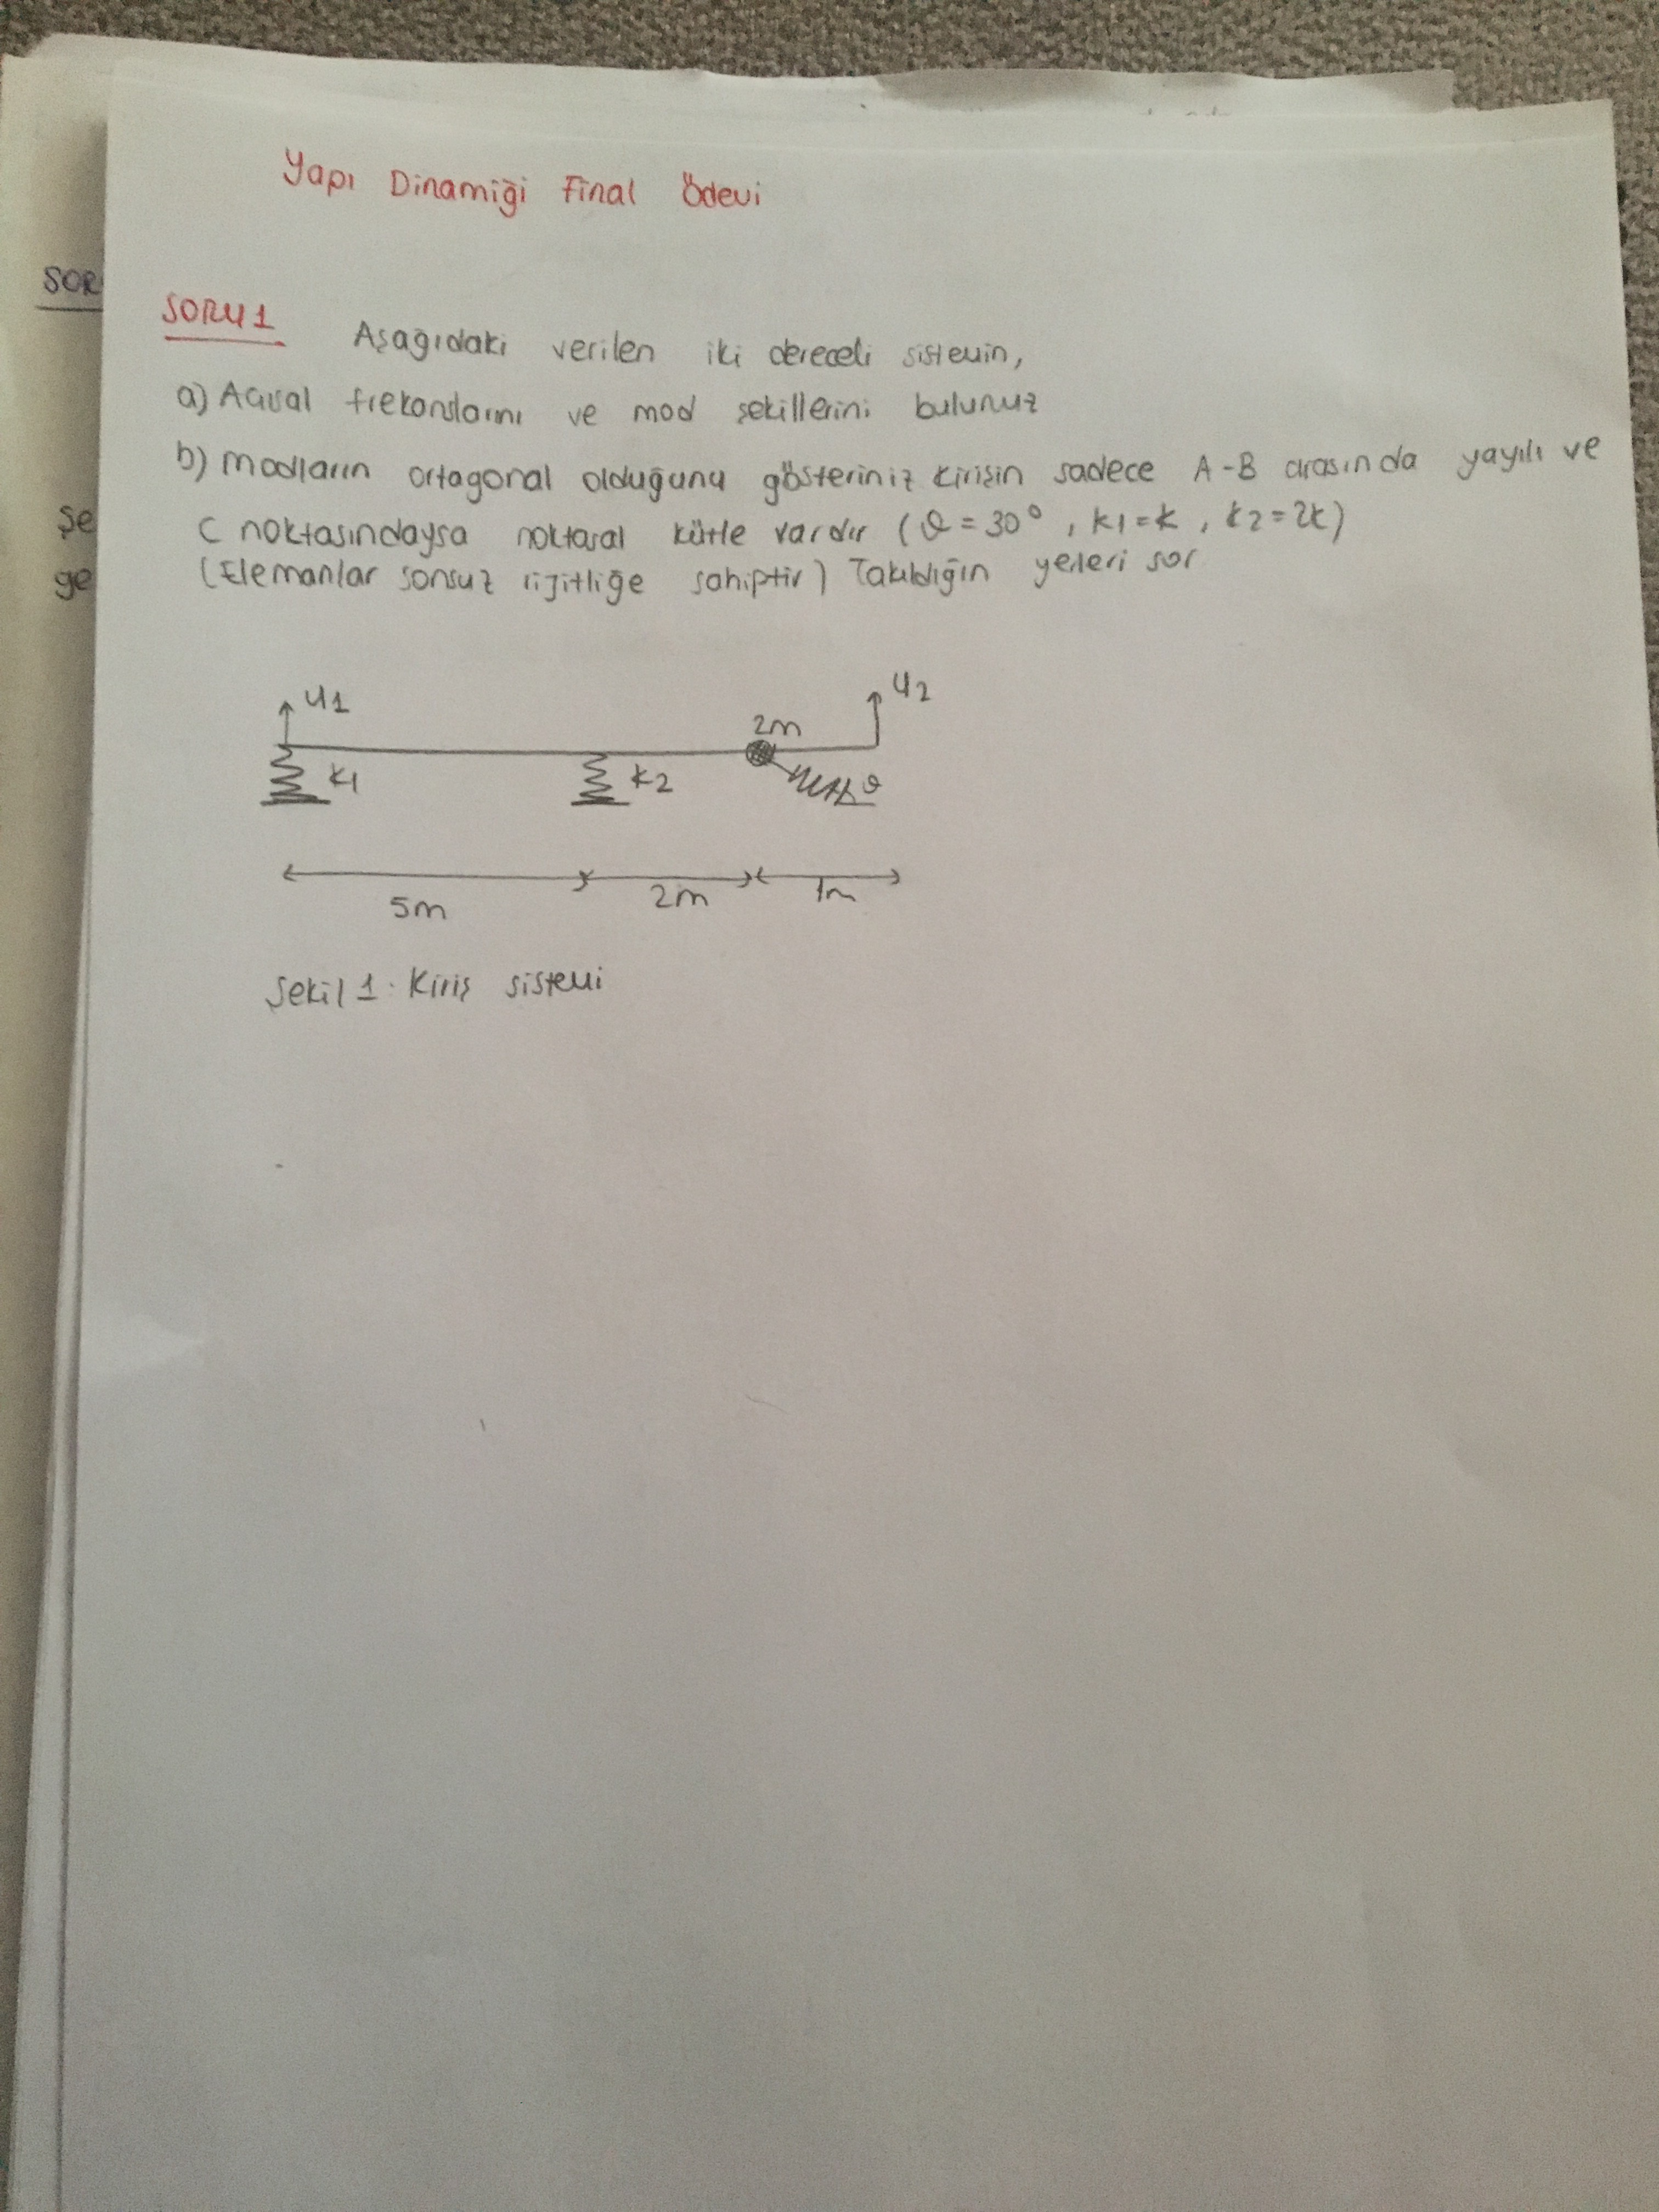 Yapı Dinamiği Final Ödevi
SOR
SORU 1 Aşağıdaki verilen iki dereceli sistemin,
a) Açısal frekanslarını ve mod şekillerini bulunuz
b) Modların ortagonal olduğunu gösteriniz kirişin sadece A-B arasında yayılı ve
Şe
C noktasındaysa noktasal kütle vardır (θ = 30°, k1 = k, k2 = 2k)
ge
(Elemanlar sonsuz rijitliğe sahiptir) Takıldığın yerleri sor
u1
u2
2m
k1
k2
θ
5m
2m
1m
Şekil 1: Kiriş sistemi